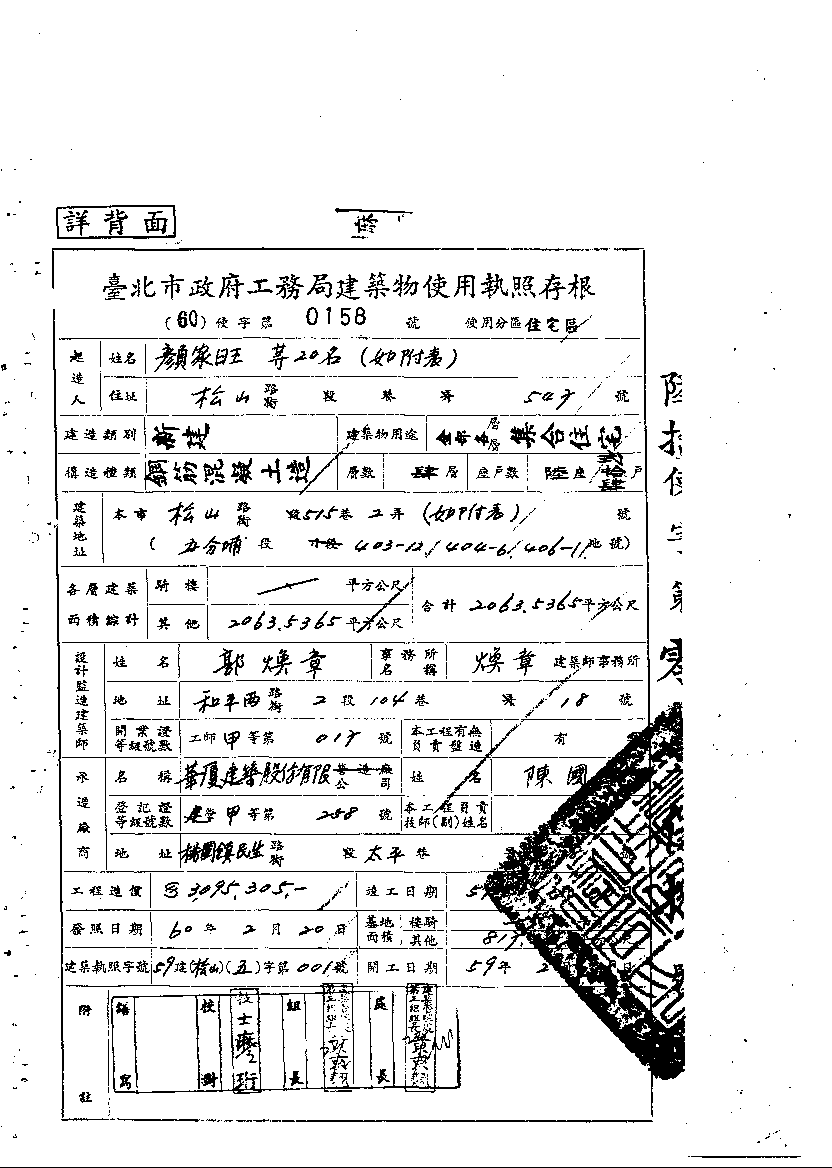 詳背面
臺北市政府工務局建築物使用執照存根
(60)使字第 0158 號 使用分區 住宅區
起造人 姓名 顏家旺 等20名 (如附表)
住址 松山 路街 段 巷 弄 547 號
建造類別 新建 建築物用途 全部 各層 集合住宅
構造種類 鋼筋混凝土造 層數 肆層 座戶數 陸座 戶
建築地址 本市 松山 路街 段515巷 2弄 (如附表) 號
(五分埔 段 小段 403-12/404-6/406-1/地號)
各層建築面積綜計 騎樓 平方公尺 合計 2063.5365平方公尺
其他 2063.5365平方公尺
設計監造建築師 姓名 郭煥章 事務所名稱 煥章 建築師事務所
地址 和平西 路街 2段104巷 弄 18 號
開業證等級號數 工師甲等第 017 號 本工程有無負責監造 有
承造廠商 名稱 華優建築股份有限營造廠公司 姓名 陳國
登記證等級號數 建營甲等第 258 號 本工程負責技師(副)姓名
地址 桃園鎮民生 路街 段 太平巷 號
工程造價 3,095,305.- 竣工日期 59
發照日期 60年2月20日 基地面積 騎樓 其他 817.
建築執照字號 59建(松山)(五)字第001號 開工日期 59年2
附註 繕寫 校對 技士 組長 處長
陸拾使字第零